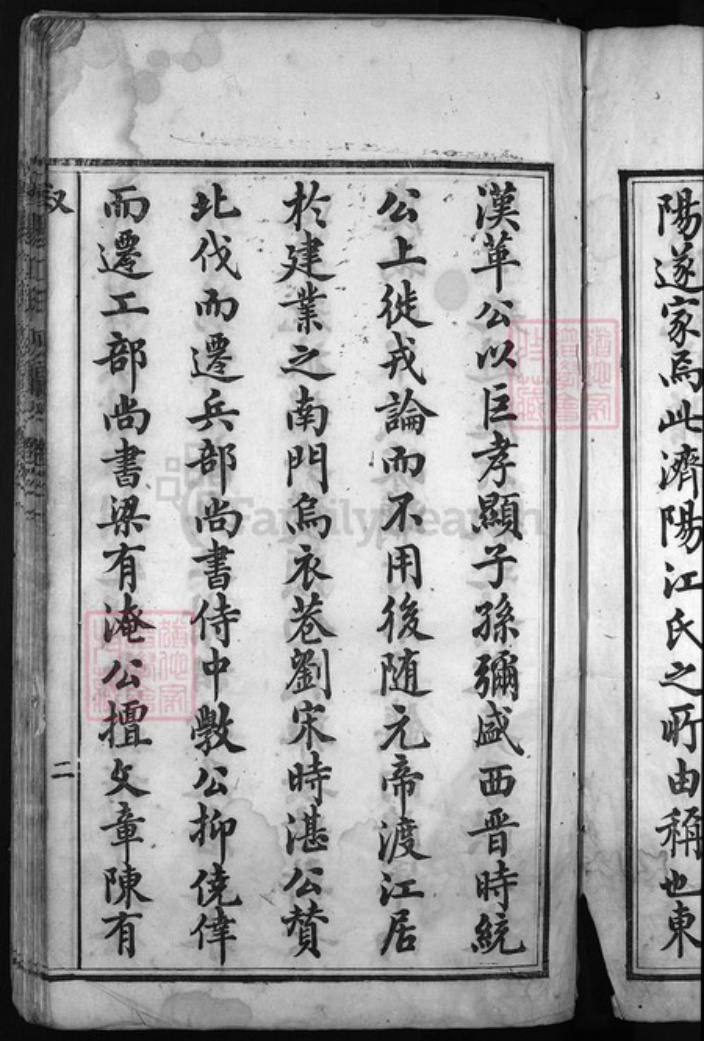 陽遂家焉此濟陽江氏之所由稱也東
漢革公以巨孝顯子孫彌盛西晋時統
公上徙戎論而不用後随元帝渡江居
於建業之南門烏衣巷劉宋時湛公贊
北伐而遷兵部尚書侍中斅公抑僥倖
而遷工部尚書梁有淹公擅文章陳有
叙
二
FamilySearch